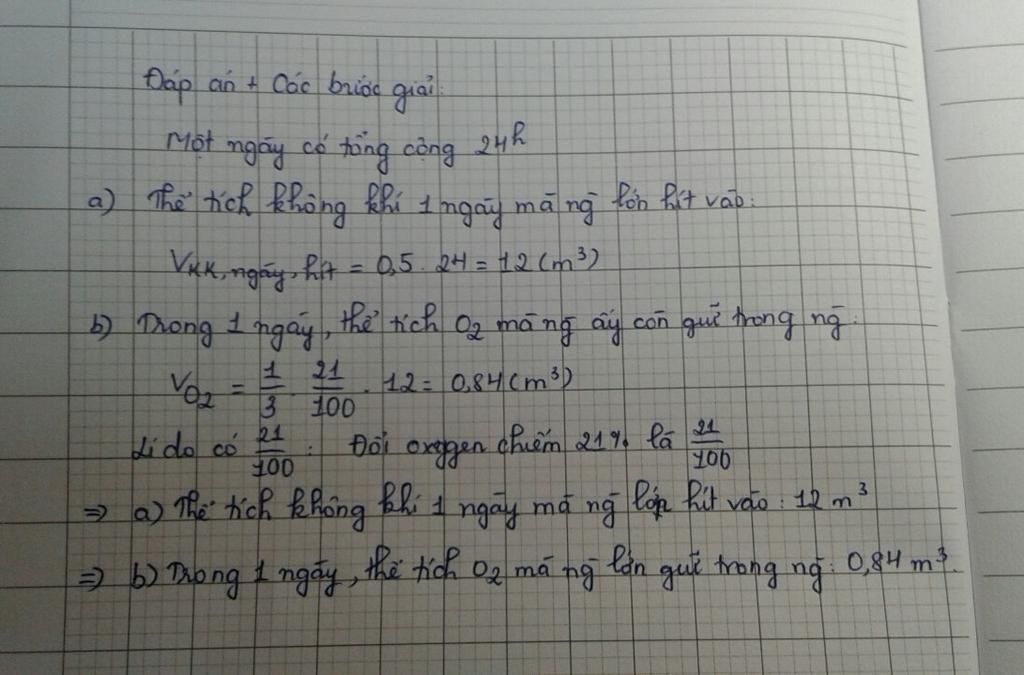 Đáp án + Các bước giải:
Một ngày có tổng cộng 24h
a) Thể tích không khí 1 ngày mà ng lớn hít vào:
VKK, ngày, hít = 0,5 . 24 = 12 (m³)
b) Trong 1 ngày, thể tích O₂ mà ng ấy còn giữ trong ng:
VO₂ = 1/3 . 21/100 . 12 = 0,84 (m³)
Lí do có 21/100 : Đổi oxygen chiếm 21% là 21/100
⇒ a) Thể tích không khí 1 ngày mà ng lớn hít vào : 12 m³
⇒ b) Trong 1 ngày, thể tích O₂ mà ng lớn giữ trong ng : 0,84 m³.